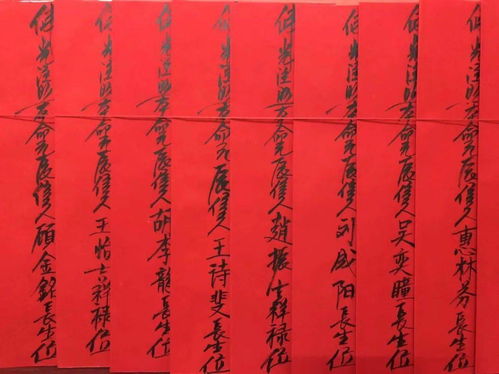 光注照本命元辰信人惠林芬長生位
光注照本命元辰信人吴奕瞳長生位
光注照本命元辰信人刘威阳長生位
光注照本命元辰信人趙振吉祥禄位
光注照本命元辰信人王诗斐長生位
光注照本命元辰信人胡李龍長生位
光注照本命元辰信人王怡吉祥禄位
光注照本命元辰信人顾金銘長生位